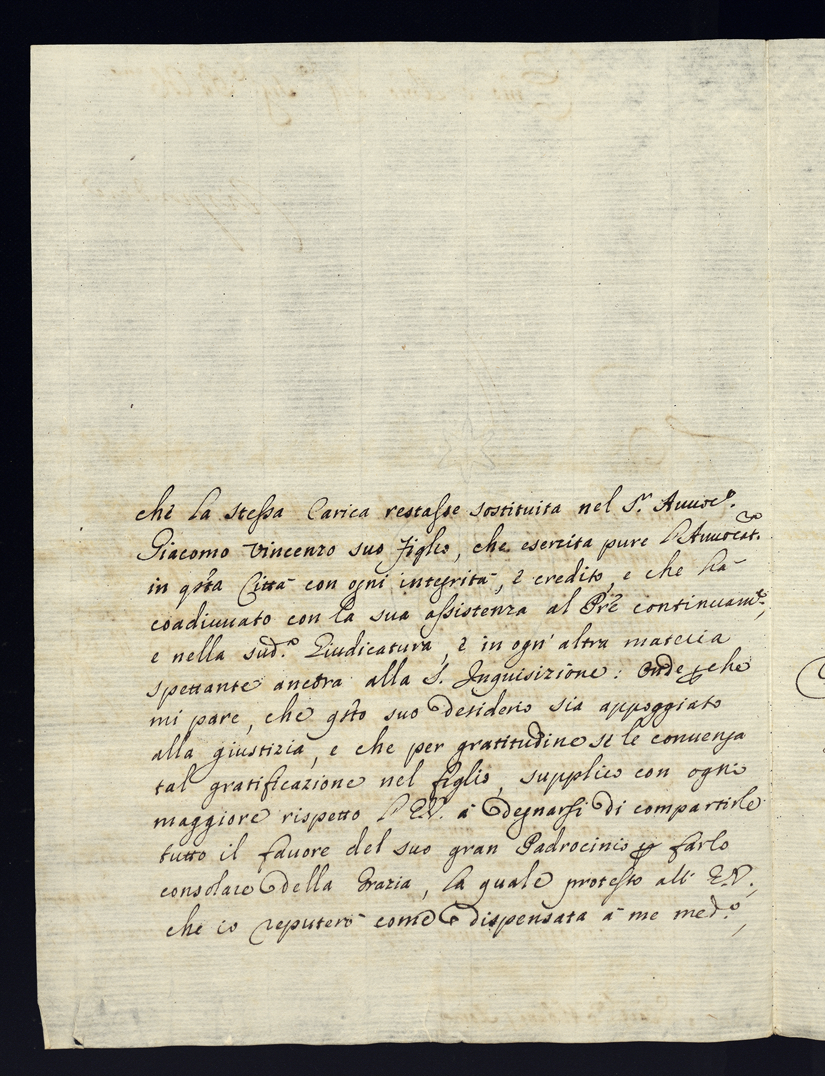 che la stessa Carica restasse sostituita nel S.r Auuoc.o
Giacomo Vincenzo suo figlio, che esercita pure l'Auuocat.o
in qsta Città con ogni integrità, è credito, e che hà
coadiuuato con la sua assistenza al Pre continuam.te,
e nella sud.a Giudicatura, è in ogn' altra materia
spettante ancora alla S. Inquisizione: Onde che
mi pare, che qsto suo desiderio sia appoggiato
alla giustizia, e che per gratitudine se le conuenga
tal gratificazione nel figlio, supplico con ogni
maggiore rispetto l'E.V. à degnarsi di compartirle
tutto il fauore del suo gran Padrocinio p farlo
consolare della Grazia, la quale protesto all' E.V.,
che io reputerò come dispensata à me med.o,